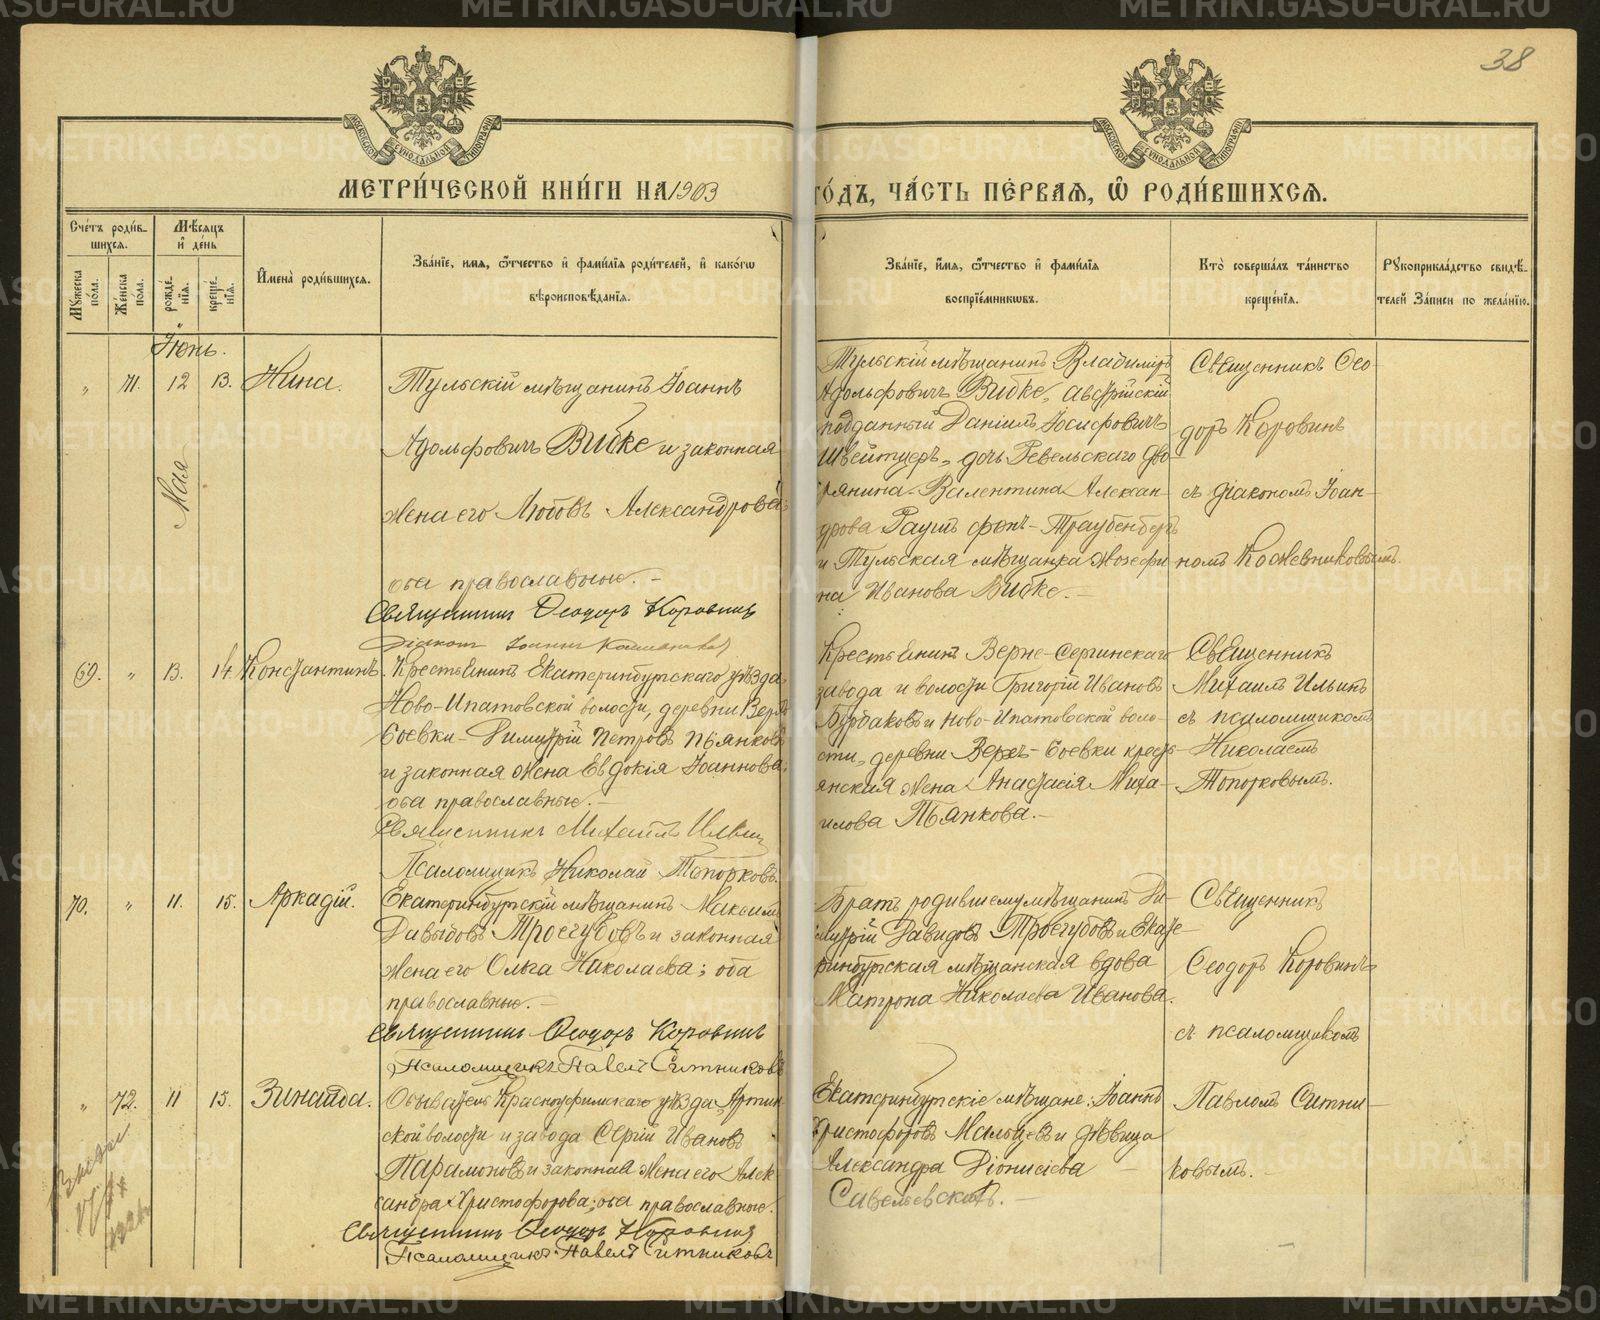 38
МОСКОВСКОЙ СѴНОДАЛЬНОЙ ТИПОГРАФІИ
МОСКОВСКОЙ СѴНОДАЛЬНОЙ ТИПОГРАФІИ
МЕТРИ́ЧЕСКОЙ КНИ́ГИ НА 1903
ГО́ДЪ, ЧА́СТЬ ПЕ́РВАЯ, Ѽ РОДИ́ВШИХСЯ.
Сче́тъ роди́в-
шихся.
Мꙋжеска по́ла.
Же́нска по́ла.
Мѣ́сяцъ
и҆ де́нь
рожде́-
нїя.
креще́-
нїя.
И҆мена̀ роди́вшихся.
Зва́нїе, и҆мя, ѻ҆́тчество и҆ фами́лїя роди́телей, и҆ како́гѡ
вѣроисповѣ́данїя.
Зва́нїе, и҆́мя, ѻ҆́тчество и҆ фами́лїя
воспрїе́мникѡвъ.
Кто̀ соверша́лъ та́инство
креще́нїя.
Рꙋкоприкла́дство свидѣ́-
телей За́писи по жела́нїю.
Іюнь.
" 71. 12 13. Нина.
Мая
Тульскій мѣщанинъ Іоаннъ
Адольфовичъ Вибке и законная
жена его Любовь Александрова;
оба православные. –
Священник Ѳеодоръ Коровинъ
Тульскій мѣщанинъ Владиміръ
Адольфовичъ Вибке, австрійскій
подданный Даніилъ Іосифовичъ
Швейтцеръ, дочь Ревельскаго дво-
рянина Валентина Алексан-
дрова Раушъ фонъ-Траубенбергъ
и Тульская мѣщанка Жозефи
на Иванова Вибке. –
Священникъ Ѳео-
доръ Коровинъ
съ діакономъ Іоан-
номъ Кожевниковымъ.
69. " 13. 14. Константинъ.
Крестьянинъ Екатеринбургскаго уѣзда,
Ново-Ипатовской волости, деревни Верхъ
Боевки Димитрій Петровъ Пьянковъ
и законная жена Евдокія Іоаннова;
оба православные. –
Священникъ Михаилъ Ильин
Псаломщикъ Николай Топорковъ.
Крестьянинъ Верхне-Сергинскаго
завода и волости Григорій Ивановъ
Бурбаковъ и Ново-Ипатовской воло-
сти, деревни Верхъ-Боевки кресть-
янская жена Анастасія Миха-
илова Пьянкова. –
Священникъ
Михаилъ Ильинъ
съ псаломщикомъ
Николаемъ
Топорковымъ.
70. " 11. 15. Аркадій.
Екатеринбургскій мѣщанинъ Максимъ
Давыдовъ Троегубовъ и законная
жена его Ольга Николаева; оба
православные. –
Священник Ѳеодоръ Коровинъ
Псаломщикъ Павелъ Ситниковъ
Братъ родившему мѣщанинъ Ди-
митрій Давидовъ Троегубовъ и Екате-
ринбургская мѣщанская вдова
Матрона Николаева Иванова.
Священникъ
Ѳеодоръ Коровинъ
съ псаломщикомъ
" 72. 11 15. Зинаида.
Обыватель Красноуфимскаго уѣзда, Артин
ской волости и завода Сергій Ивановъ
Парамоновъ и законная жена его Алек
сандра Христофорова; оба православные.
Священник Ѳеодоръ Коровинъ
Псаломщикъ Павелъ Ситниковъ
Екатеринбургскіе мѣщане: Іоаннъ
Христофоровъ Мальцевъ и дѣвица
Александра Діонисіева
Савельевскихъ. –
Павломъ Ситни-
ковымъ.
METRIKI.GASO-URAL.RU